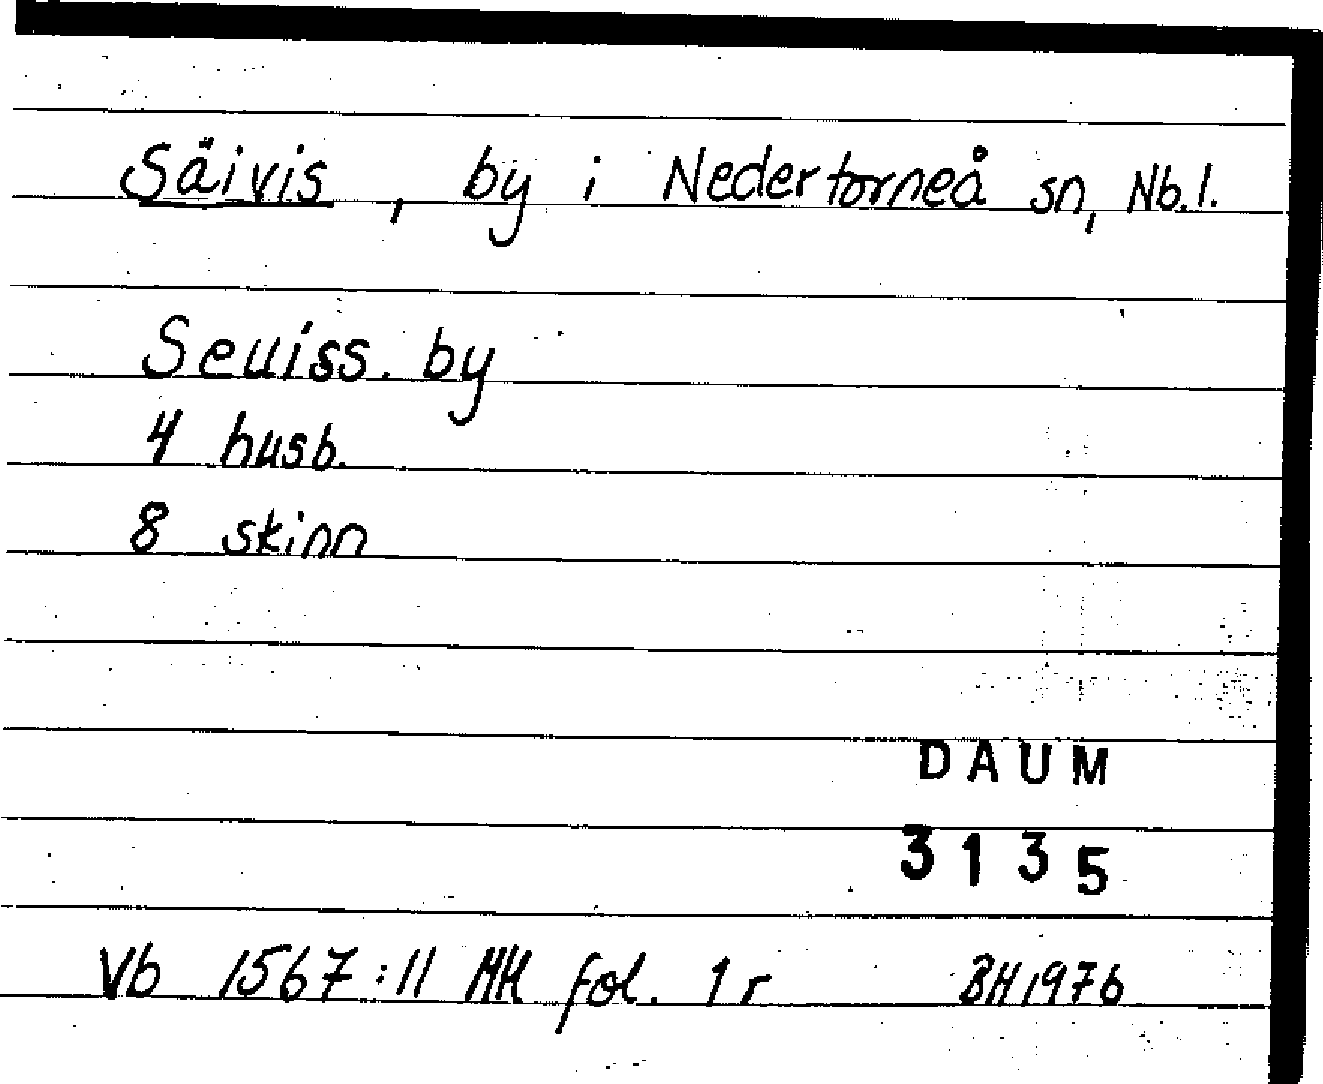 Säivis, by i Nedertorneå sn, Nb.l.
Seuiss. by
4 husb.
8 skinn
DAUM
3135
Vb 1567:11 MH fol. 1r BH 1976